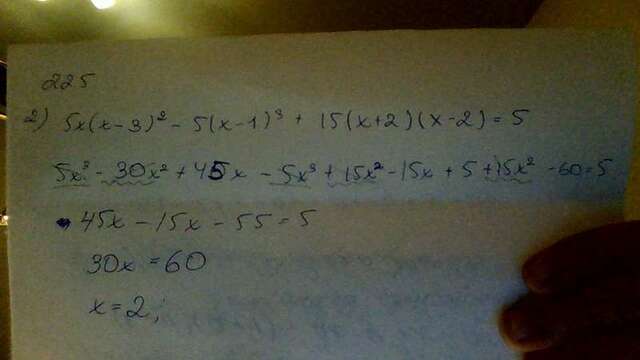 225
2) 5x(x-3)² - 5(x-1)³ + 15(x+2)(x-2) = 5
5x³ - 30x² + 45x - 5x³ + 15x² - 15x + 5 + 15x² - 60 = 5
45x - 15x - 55 = 5
30x = 60
x = 2;